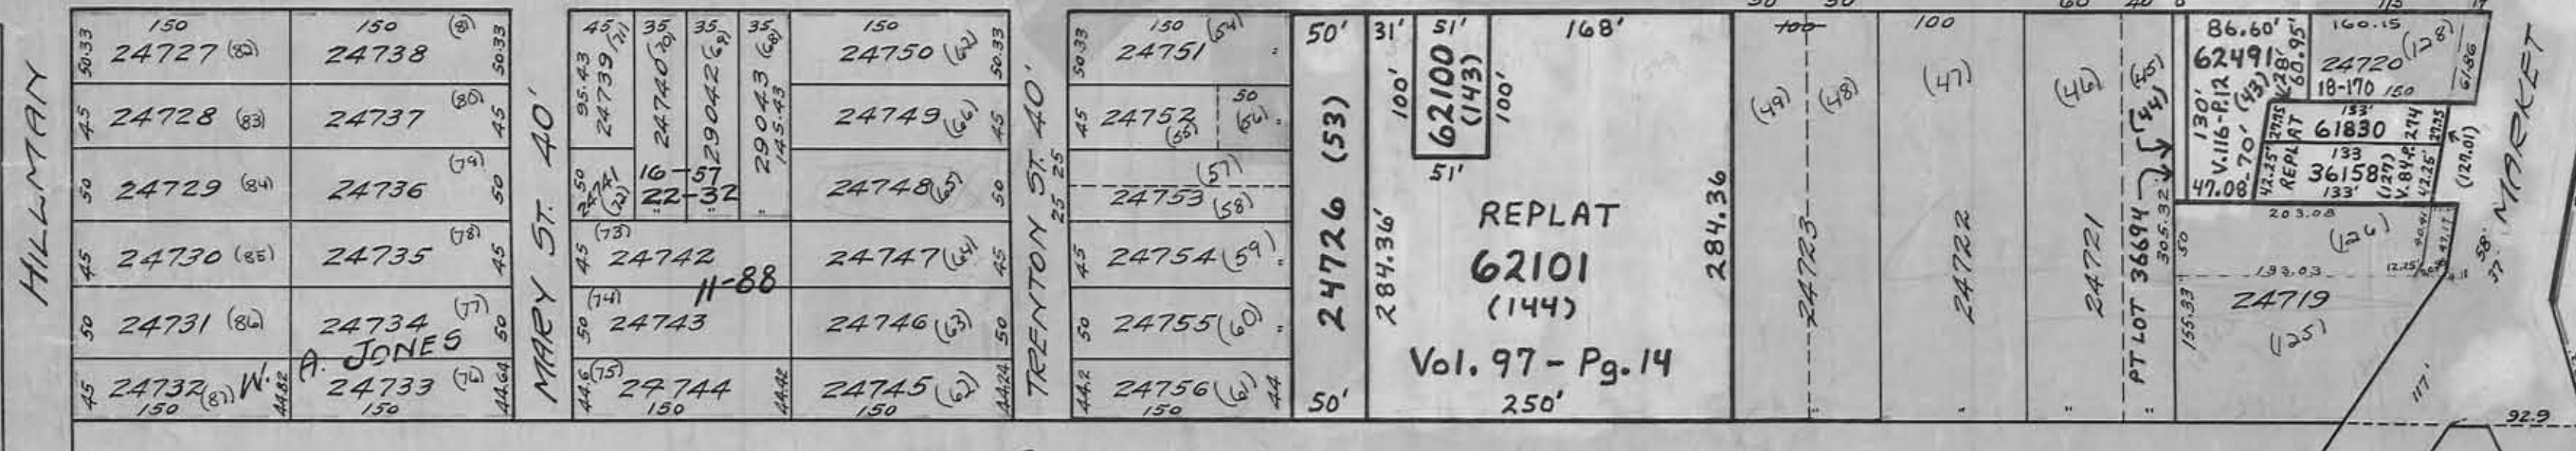 HILLMAN
150
24727 (82)
50.33
24728 (83)
45
24729 (84)
50
24730 (85)
45
24731 (86)
50
24732 (87)
45
150
44.82
W. A. JONES
150
24738
(81)
50.33
24737
(80)
45
24736
(79)
50
24735
(78)
45
24734
(77)
50
24733
(76)
44.64
150
MARY ST. 40'
45
95.43
24739 (71)
35
24740 (70)
35
29042 (69)
35
29043 (68)
145.43
50
(72)
16-57
22-32
(73)
45
24742
11-88
(74)
50
24743
(75)
44.6
24744
150
44.42
150
24750 (67)
50.33
24749 (66)
45
24748 (65)
50
24747 (64)
45
24746 (63)
50
24745 (62)
150
44.24
TRENTON ST. 40'
25 25
150
(54)
50.33
24751
45
24752
(55)
50
(56)
(57)
24753 (58)
45
24754 (59)
50
24755 (60)
44.2
24756 (61)
44
150
50'
24726 (53)
50'
31'
100'
51'
62100
(143)
51'
168'
100'
284.36'
284.36
REPLAT
62101
(144)
Vol. 97 - Pg. 14
250'
100
(49)
(48)
24723
100
(47)
24722
(46)
24721
(45)
(44)
PT LOT 36694
305.32
86.60'
62491
130'
V.116-P.12
(43)
70'
47.08
28'
60.95'
160.15
24720 (128)
18-170
150
61.86
27.75
REPLAT
42.25'
133'
61830
133
36158
(127)
133'
V.84 P.274
27.75
42.25'
(127.01)
203.08
(126)
50
193.03
12.25
24719
(125)
155.33
117'
58'
37'
92.9
MARKET